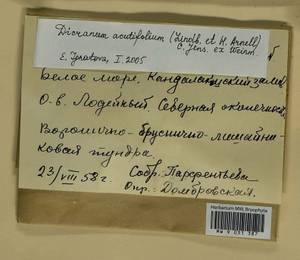 Dicranum acutifolium (Lindb. et H. Arnell)
C. Jens. ex Weinm.
E. Ignatova, I. 2005
Белое море, Кандалакшский залив
О-в. Лодейный. Северная оконечность
Воронично-бруснично-лишайни-
ковая тундра
23/VIII 58 г. Собр. Парфентьева
Опр.: Домбровская.
Herbarium MW, Bryophyta